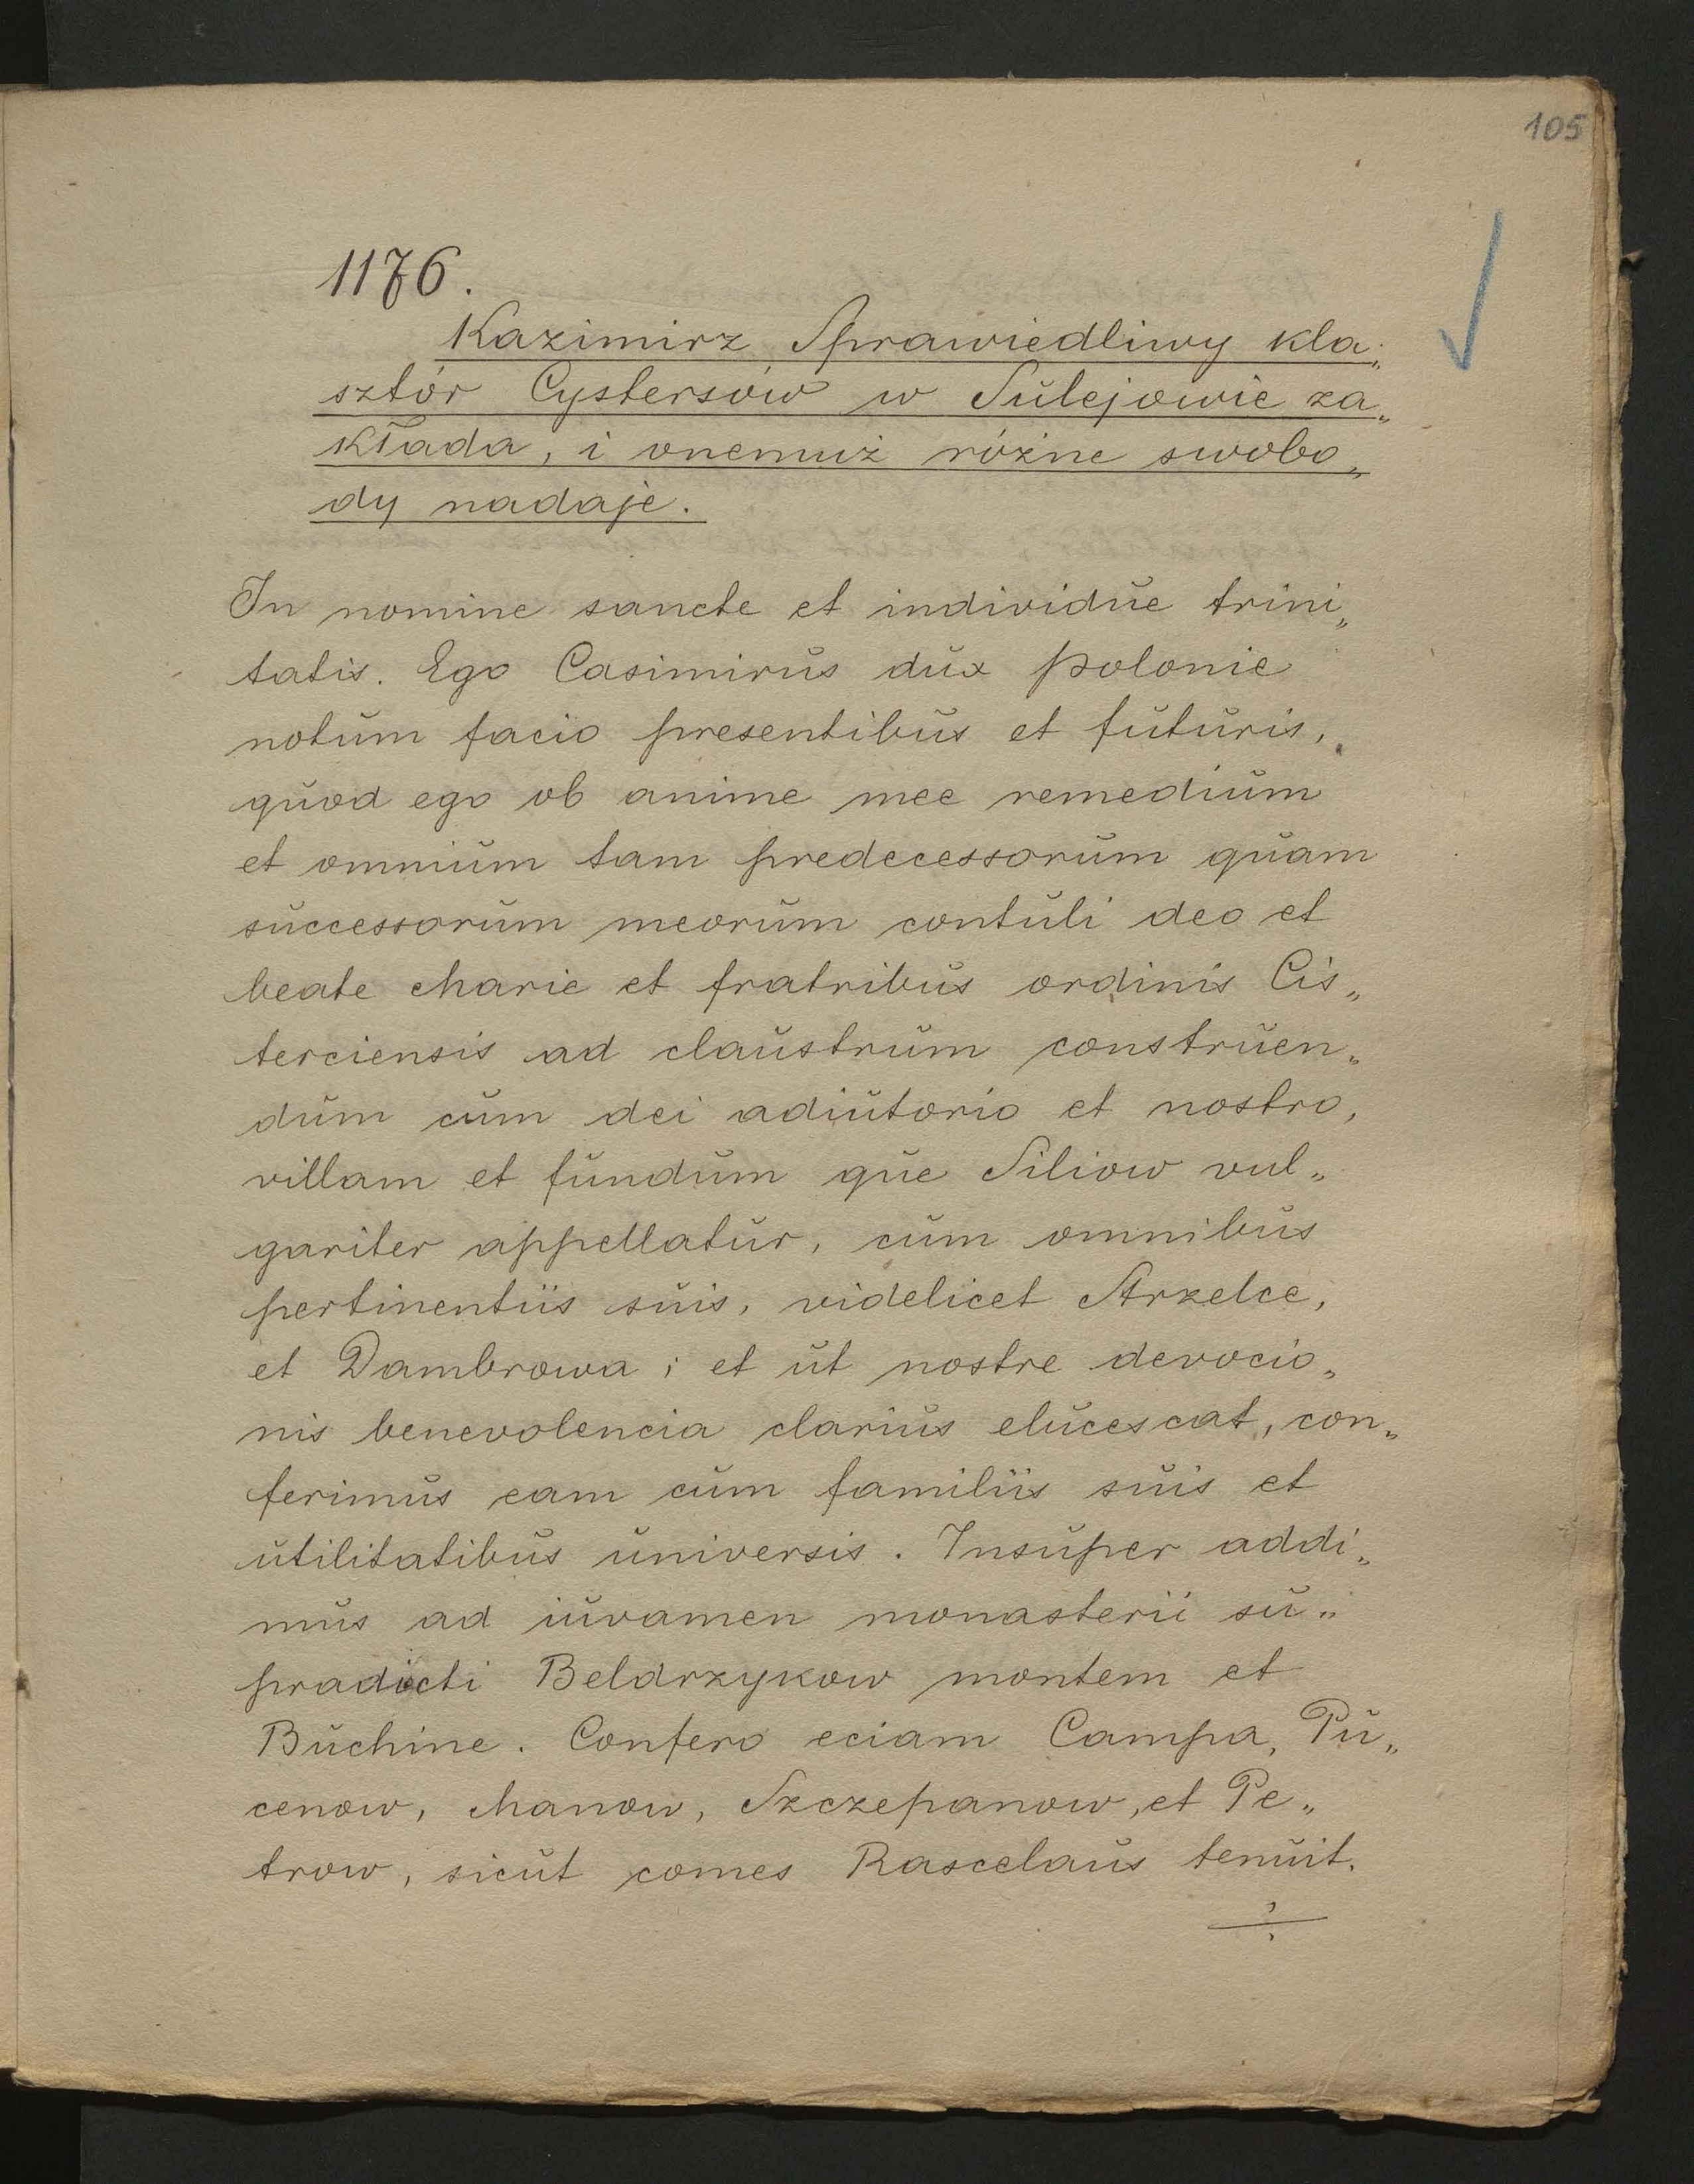 105
1176.
Kazimirz Sprawiedliwy kla„
sztór Cystersów w Sulejowie za„
kłada, i onemuż różne swobo„
dy nadaje.
In nomine sancte et individŭe trini„
tatis. Ego Casimirŭs dŭx polonie
notŭm facio presentibŭs et fŭtŭris,
qŭod ego ob anime mee remediŭm
et omniŭm tam predecessorŭm qŭam
sŭccessorŭm meorŭm contŭli deo et
beate Marie et fratribŭs ordinis Cis„
terciensis ad claŭstrŭm constrŭen„
dŭm cŭm dei adiŭtorio et nostro,
villam et fŭndŭm qŭe Siliow vul„
gariter appellatŭr, cŭm omnibŭs
pertinentiis sŭis, videlicet Strzelce,
et Dambrowa; et ŭt nostre devocio„
nis benevolencia clariŭs elŭcescat, con„
ferimŭs eam cŭm familiis sŭis et
ŭtilitatibŭs ŭniversis. Insŭper addi„
mŭs ad iŭvamen monasterii sŭ„
pradicti Beldrzykow montem et
Bŭchine. Confero eciam Campa, Pŭ„
cenow, Manow, Szczepanow, et Pe„
trow, sicŭt comes Rascelaŭs tenŭit.